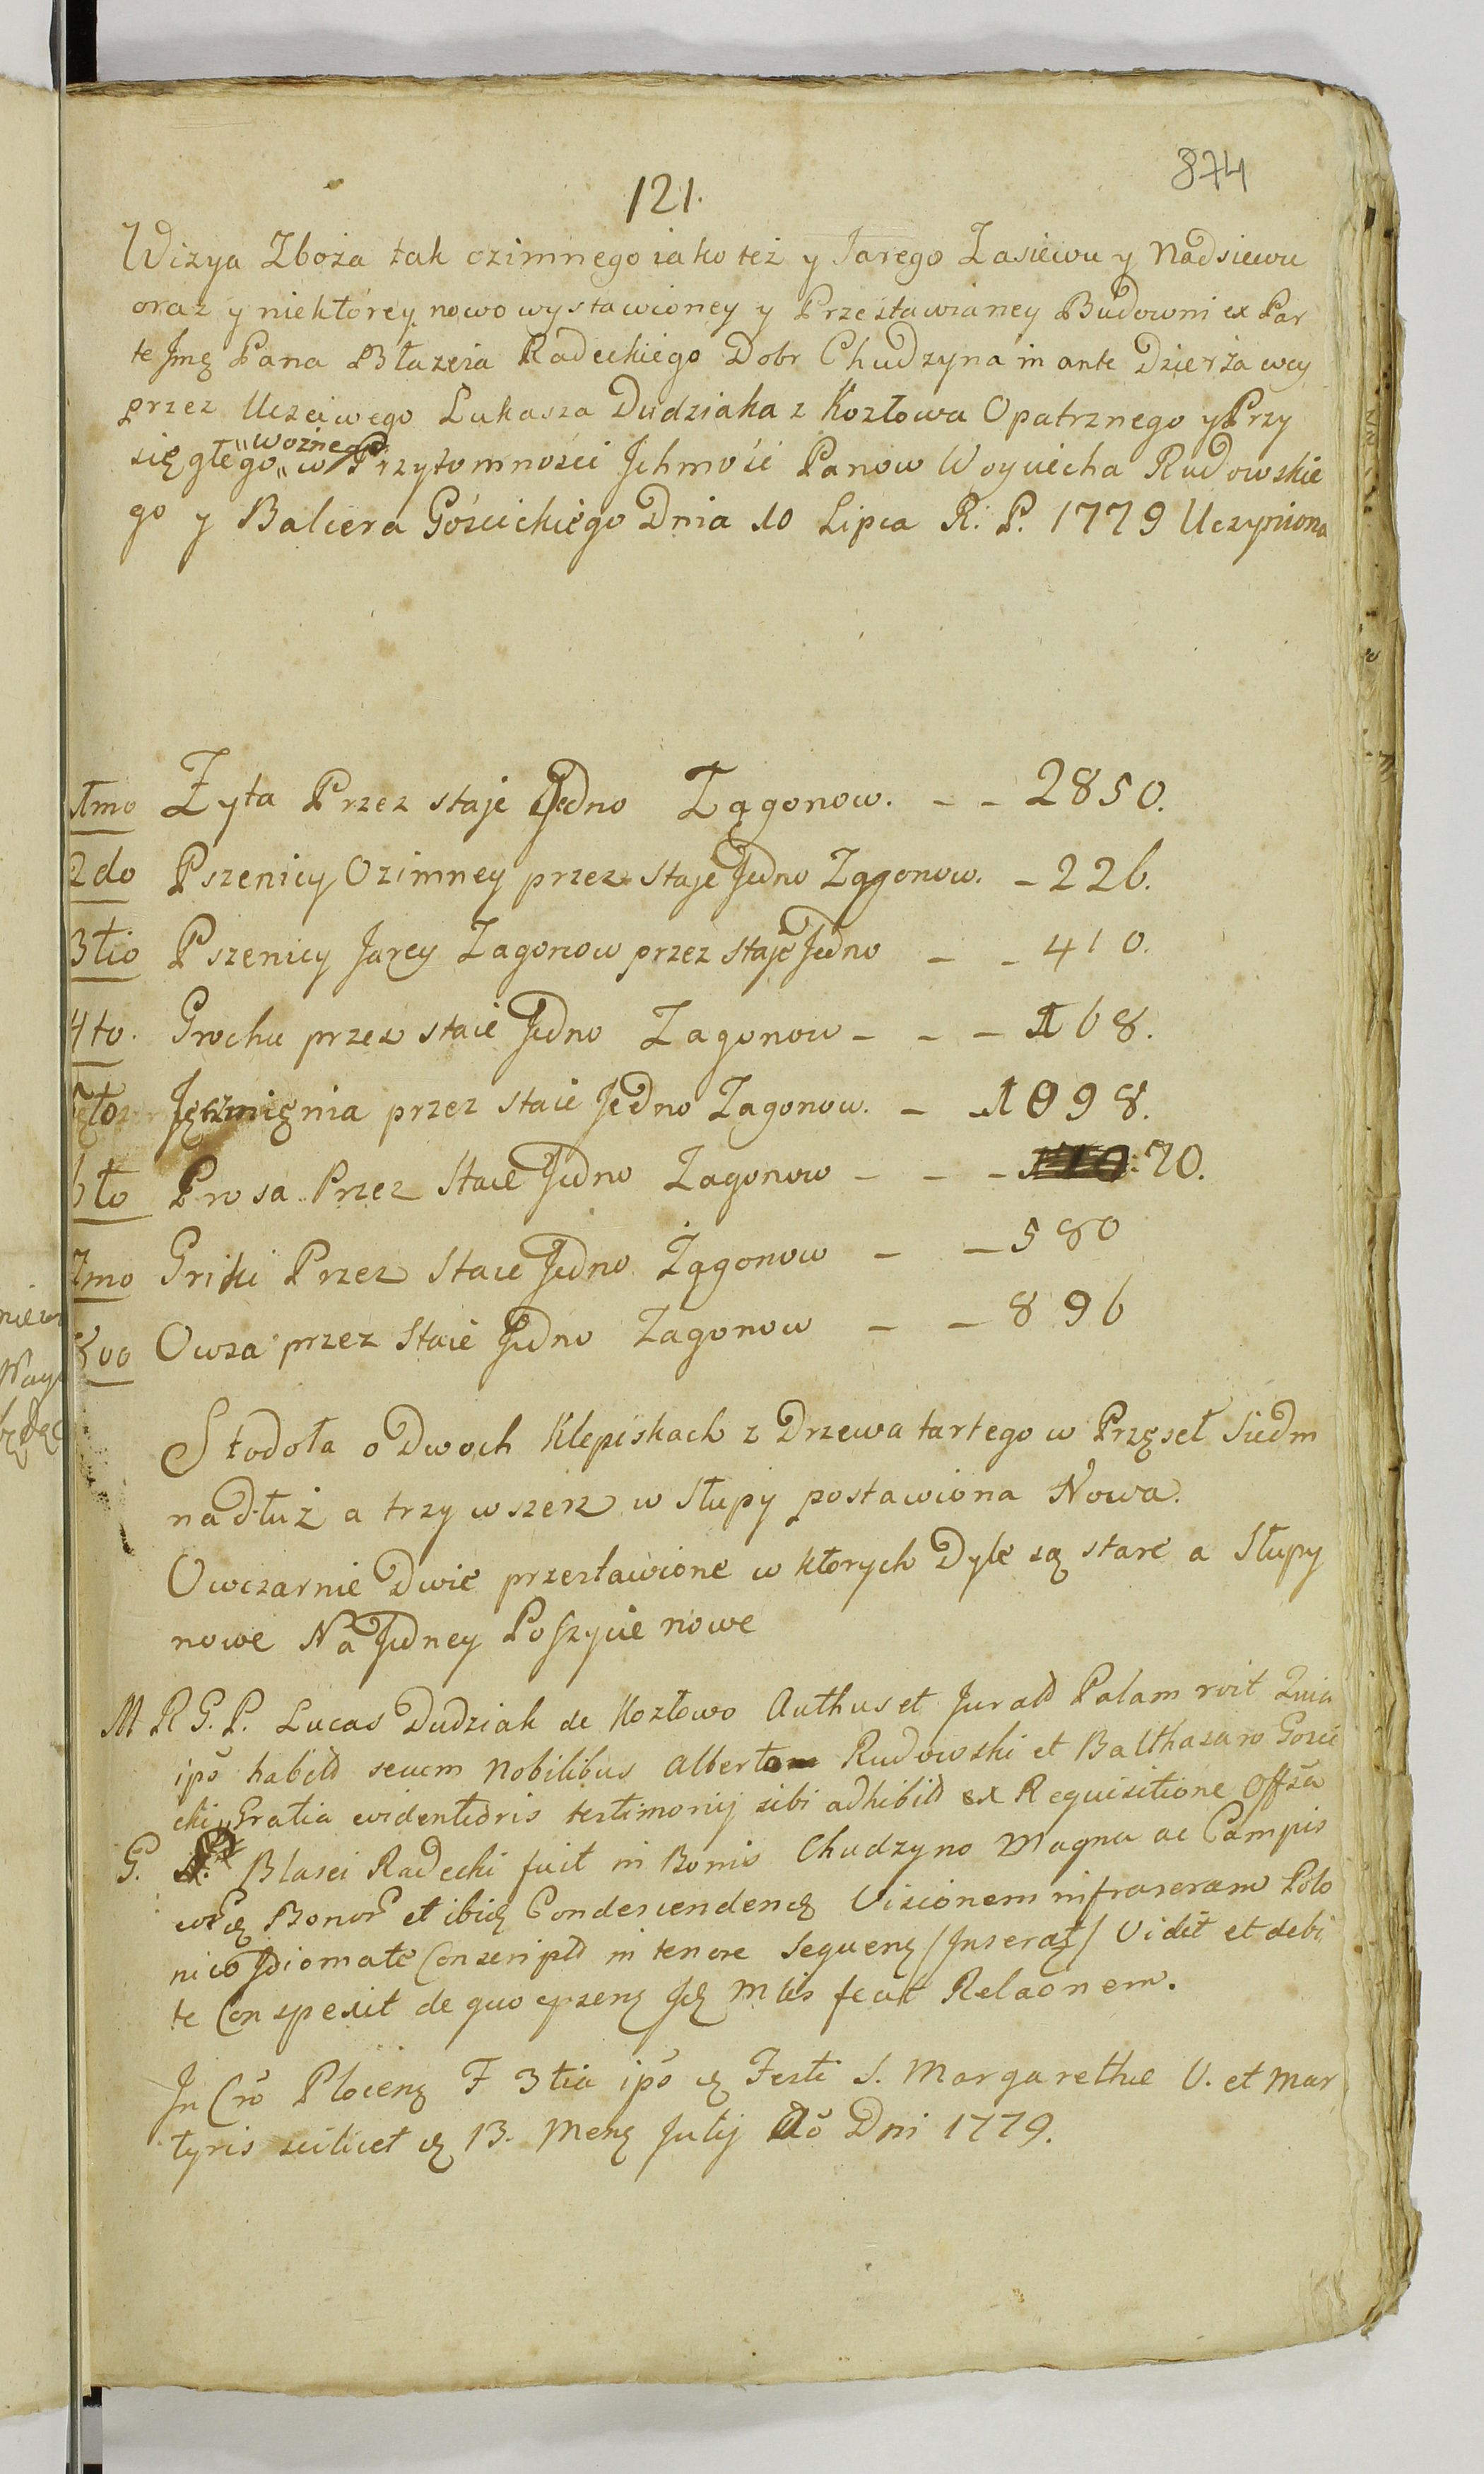 874
121.
Wizya Zboża tak ozimnego iako też y Jarego Zasiewu y Nadsiewu
oraz y niektórey nowo wystawioney y Przestawianey Budowni ex Par
te Jmę Pana Błazeia Radeckiego Dobr Chudzyna in ante Dzierżawcy
przez Uczciwego Lukasza Dudziaka z Kozłowa Opatrznego y Przy
sięgłego "woznego" w Przytomności Jchmość Panow Woyciecha Rudowskie
go y Balcera Gościckiego Dnia 10 Lipca R. P. 1779 Uczyniona
1mo Żyta Przez staje Jedno Zagonow. - - 2850.
2do Pszenicy Ozimney przez staje Jedno Zagonow. - 226.
3tio Pszenicy Jarey Zagonow przez staje Jedno - - 410.
4to. Grochu przez staie Jedno Zagonow - - - 168.
5to Jęczmięnia przez staie Jedno Zagonow. - 1098.
6to Prosa Przez Staie Jedno Zagonow - - - 70.
7mo Griki Przez Staie Jedno Zagonow - - 580
8vo Owsa przez Staie Jedno Zagonow - - 896
Stodoła o Dwoch Klepiskach z Drzewa tartego w Przęseł Siedm
nadłuż a trzy wszerz w Słupy postawiona Nowa.
Owczarnie Dwie przestawione w ktorych Dyle są stare a Słupy
nowe Na Jedney Poszycie nowe
M R G. P. Lucas Dudziak de Kozłowo Authus et Jurats Palam rvit Quia
ipõ habits secum Nobilibus Alberto Rudowski et Balthasaro Gosci
cki Gratia evidentioris testimonij sibi adhibits ex Requisitione Offsã
G. Blasei Radecki fuit in Bonis Chudzyno Magna ac Campis
Bonor et ibiq Condescendenq Visionem infraseram Polo
nico Jdiomate Conscripts in tenore Sequenq /Jnserat/ Vidit et debi
te Conspexit de quo epzenq Jdq Mtis fecit Relaõnem.
Jn Crõ Plocenq F 3tia ipõ q Festi S. Margarethæ V. et Mar
tyris scilicet q 13. Menq Julij Aõ Dni 1779.